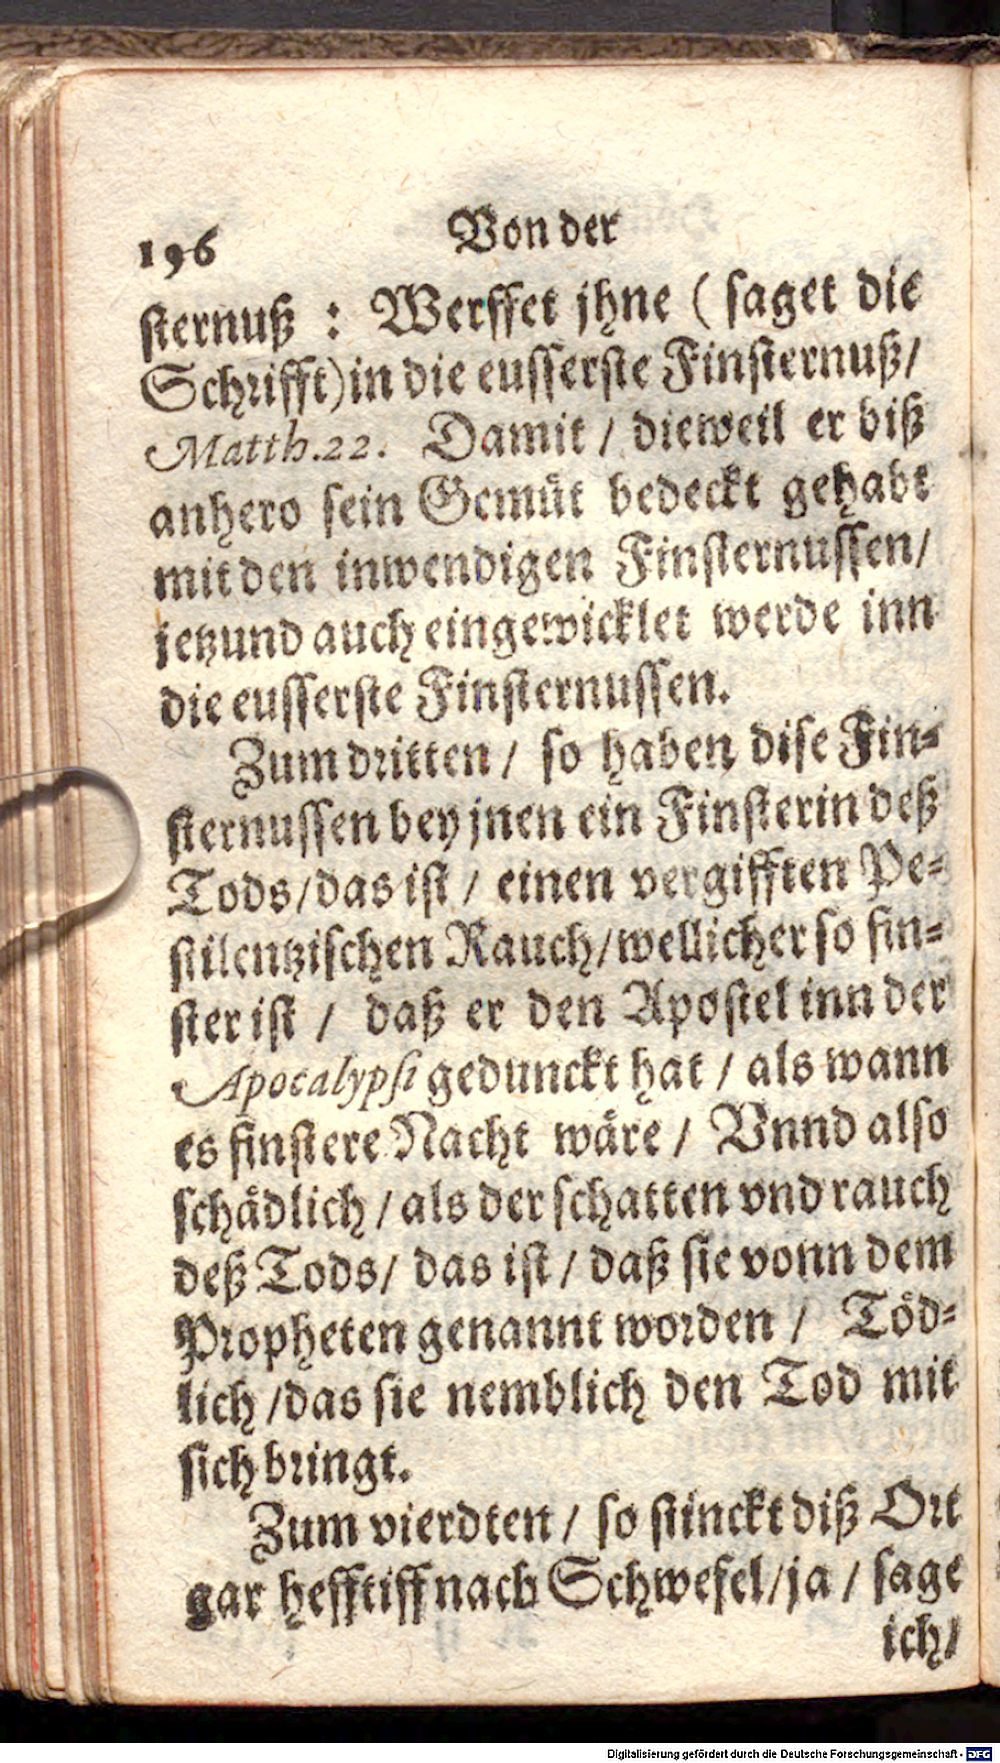 196
Von der
sternuß : Werffet jhne ( saget die
Schrifft) in die eusserste Finsternuß/
Matth.22. Damit / dieweil er biß
anhero sein Gemüt bedeckt gehabt
mit den inwendigen Finsternussen/
jetzund auch eingewicklet werde inn
die eusserste Finsternussen.
Zum dritten / so haben dise Fin-
sternussen bey jnen ein Finsterin deß
Tods/das ist / einen vergifften Pe-
stilentzischen Rauch/wellicher so fin-
ster ist / daß er den Apostel inn der
Apocalypsi gedunckt hat / als wann
es finstere Nacht wäre / Vnnd also
schädlich / als der schatten vnd rauch
deß Tods/ das ist / daß sie vonn dem
Propheten genannt worden / Töd-
lich /das sie nemblich den Tod mit
sich bringt.
Zum vierdten / so stinckt diß Ort
gar hefftiff nach Schwefel/ja / sage
ich/
Digitalisierung gefördert durch die Deutsche Forschungsgemeinschaft - DFG